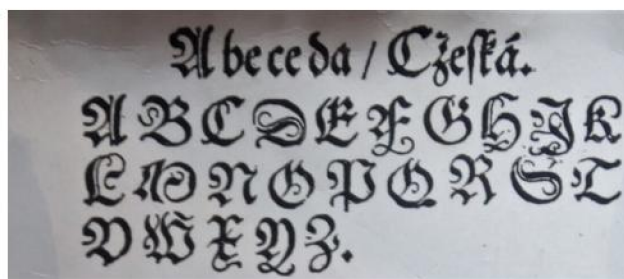 Abeceda / Cżeſká.
A B C D E F G H J K
L M N O P Q R S T
V W X Y Z.